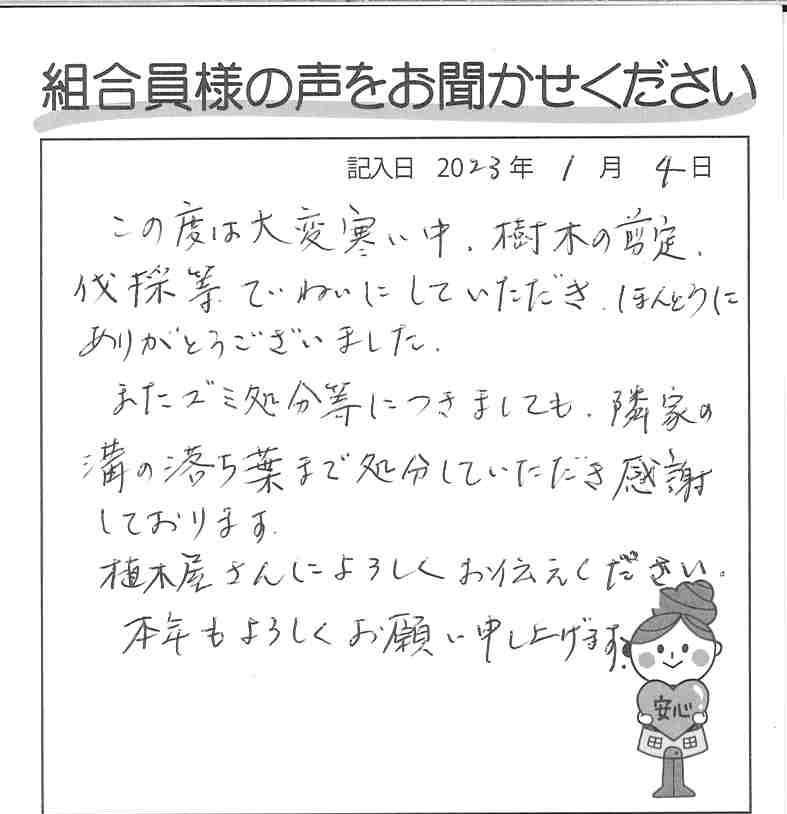 組合員様の声をお聞かせください
記入日 2023年 1月 4日
この度は大変寒い中、樹木の剪定、
伐採等ていねいにしていただき、ほんとうに
ありがとうございました。
またゴミ処分等につきましても、隣家の
溝の落ち葉まで処分していただき感謝
しております。
植木屋さんによろしくお伝えください。
本年もよろしくお願い申し上げます。
安心